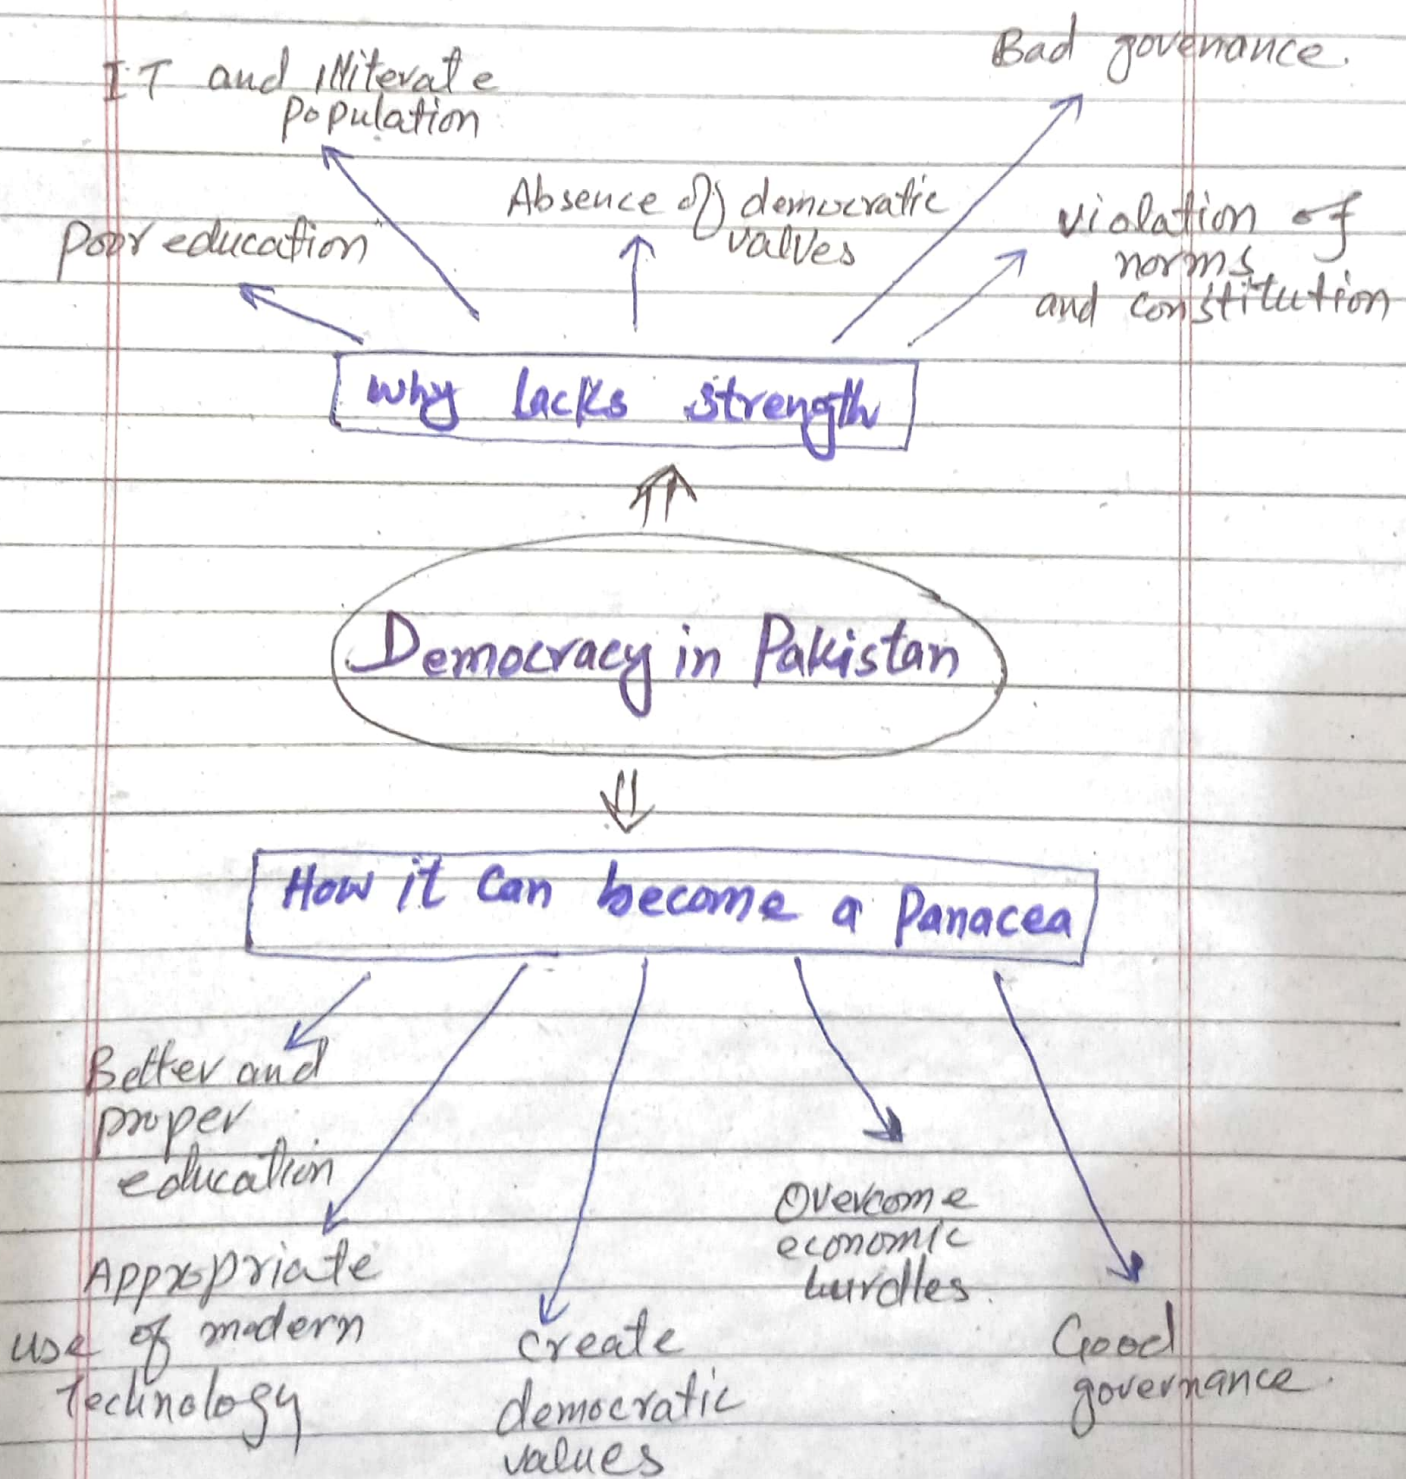 IT and illiterate
population
Bad govenance.
Absence of democratic
values
Poor education
violation of
norms
and constitution
Why lacks strength
Democracy in Pakistan
How it can become a Panacea
Better and
proper
education
Appropriate
use of modern
technology
create
democratic
values
Overcome
economic
hurdles.
Good
governance.